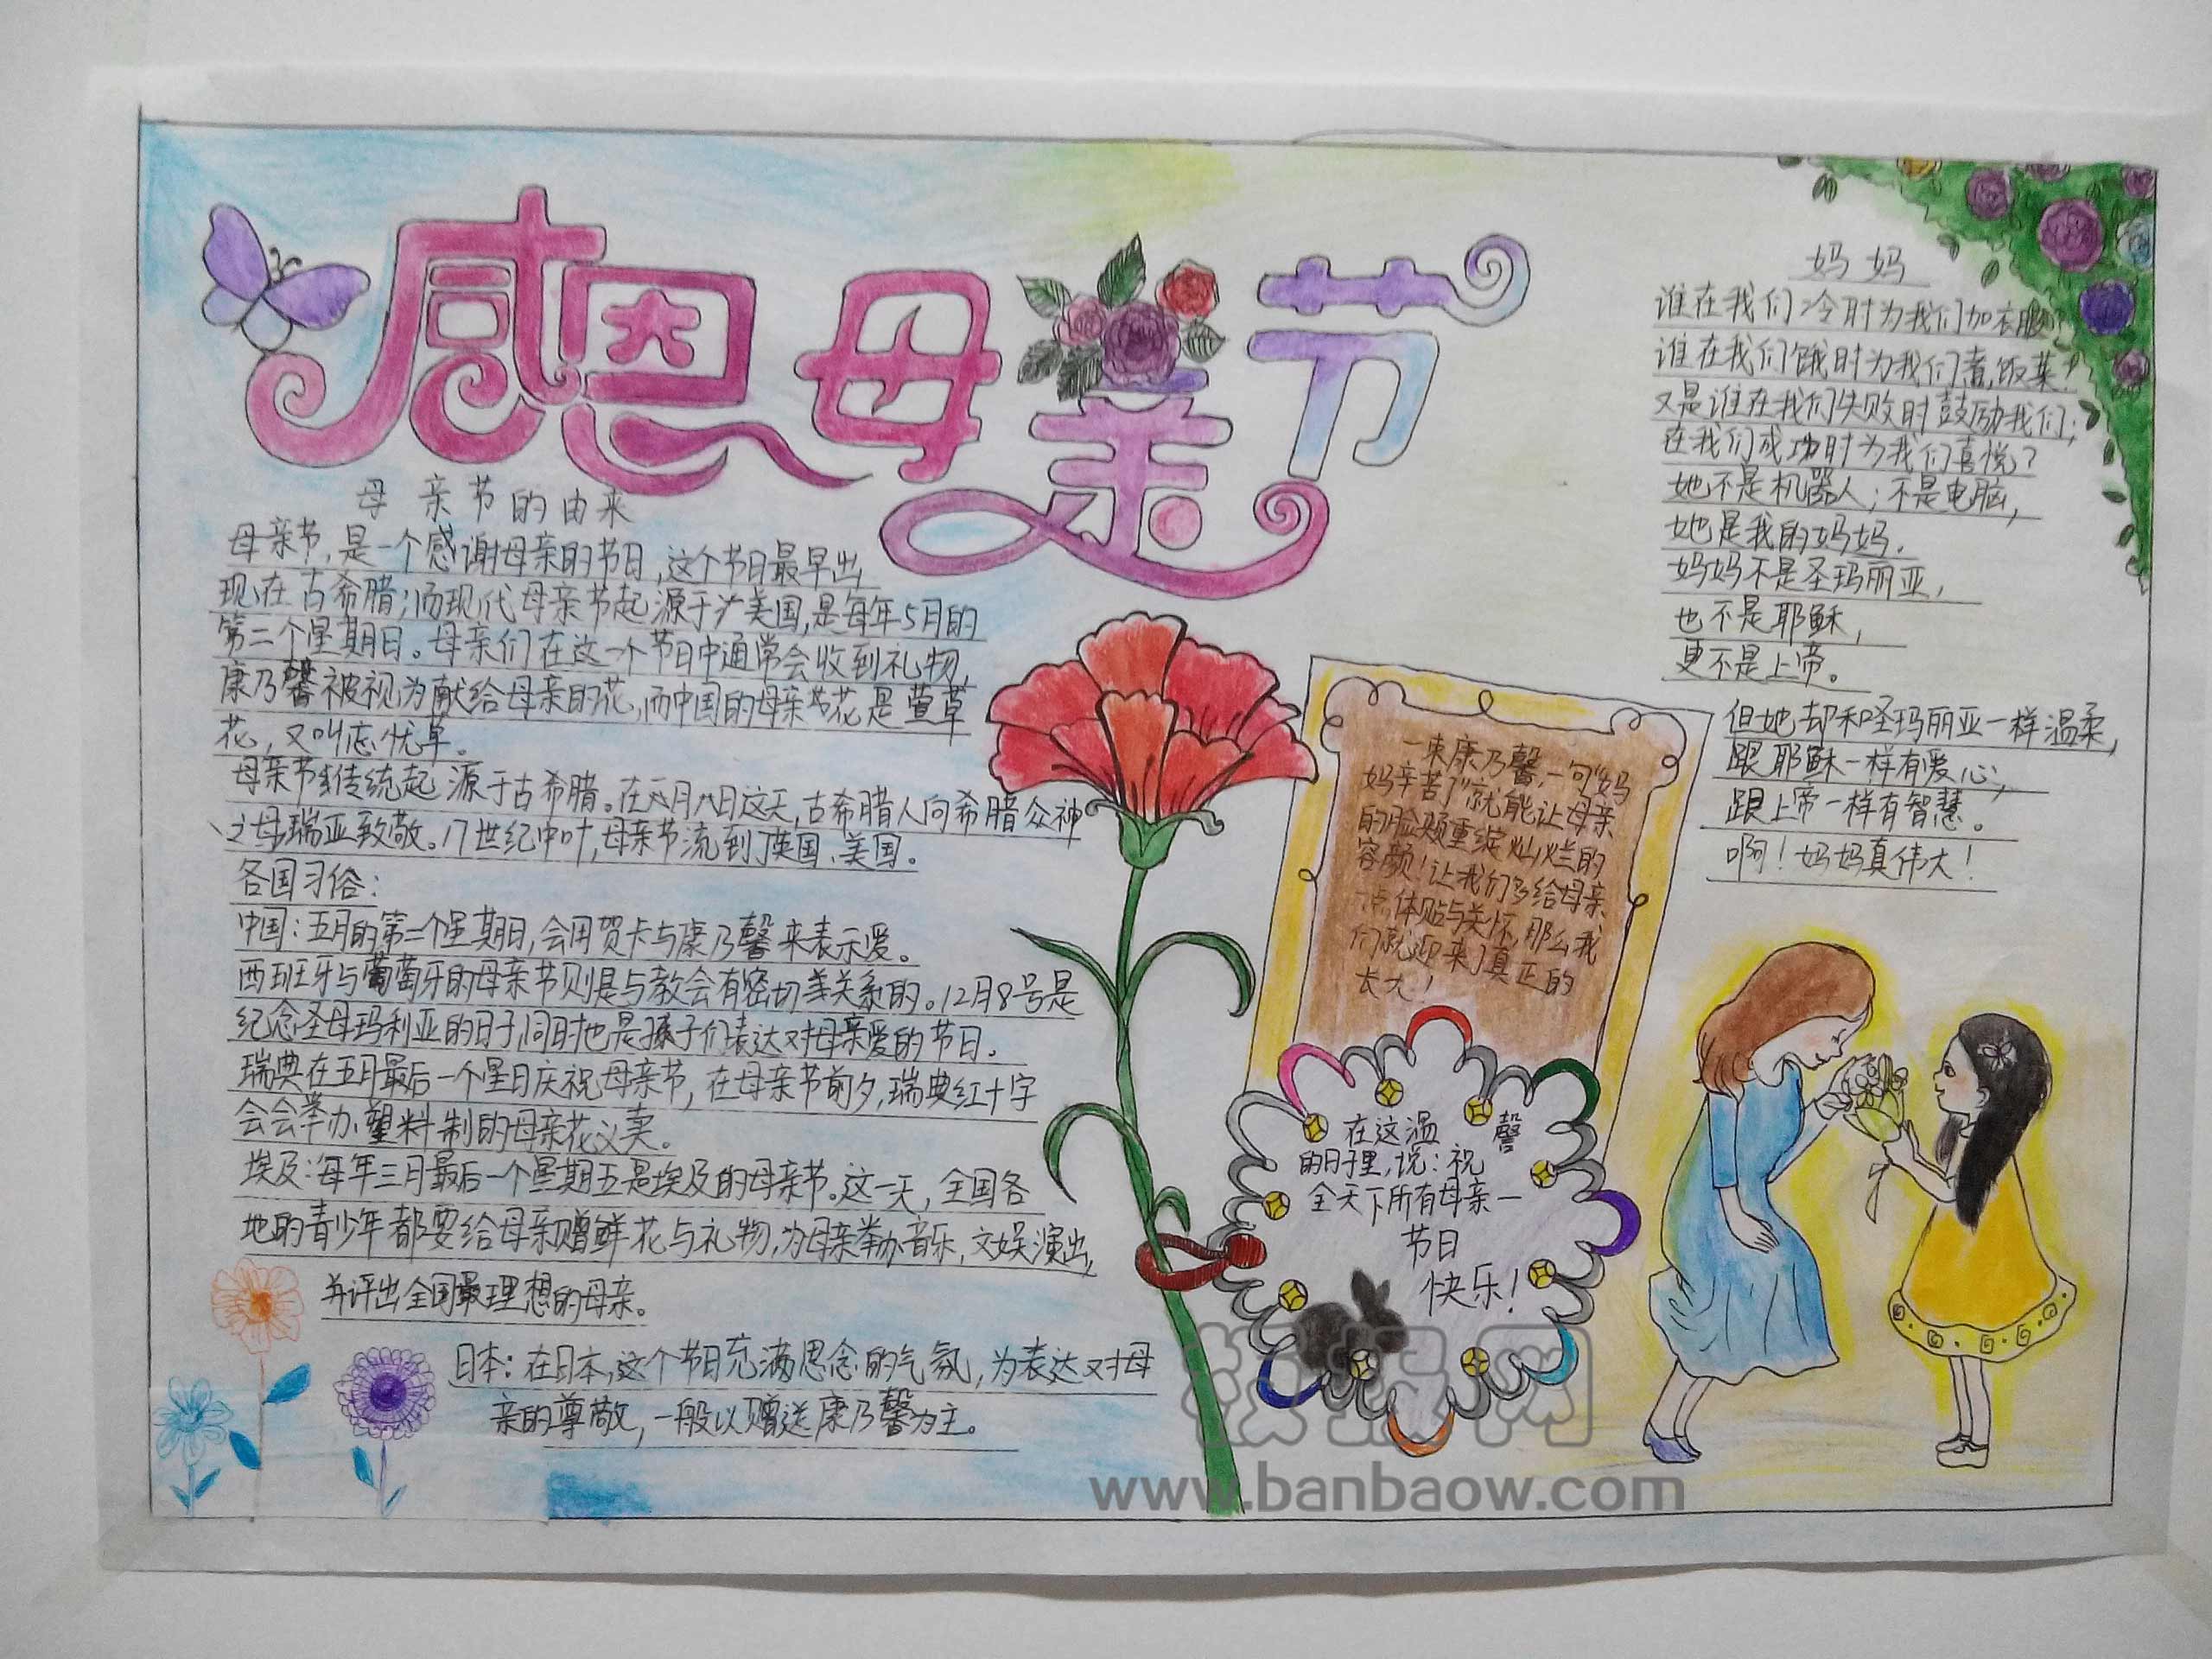 感恩母亲节
母亲节的由来
母亲节,是一个感谢母亲的节日,这个节日最早出
现在古希腊;而现代母亲节起源于美国,是每年5月的
第二个星期日。母亲们在这一个节日中通常会收到礼物,
康乃馨被视为献给母亲的花,而中国的母亲节花是萱草
花,又叫忘忧草。
母亲节传统起源于古希腊。在 月八日这天,古希腊人向希腊众神
之母瑞亚致敬。17世纪中叶,母亲节流到了英国、美国。
各国习俗:
中国:五月的第二个星期日,会用贺卡与康乃馨来表示爱。
西班牙与葡萄牙的母亲节则是与教会有密切关系的。12月8号是
纪念圣母玛利亚的日子,同时也是孩子们表达对母亲爱的节日。
瑞典在五月最后一个星日庆祝母亲节,在母亲节前夕,瑞典红十字
会会举办塑料制的母亲花义卖。
埃及:每年三月最后一个星期五是埃及的母亲节。这一天,全国各
地的青少年都要给母亲赠鲜花与礼物,为母亲举办音乐,文娱演出,
并评出全国最理想的母亲。
日本:在日本,这个节日充满思念的气氛,为表达对母
亲的尊敬,一般以赠送康乃馨为主。
一束康乃馨,一句“妈
妈辛苦了”就能让母亲
的脸颊重绽灿烂的
容颜!让我们多给母亲
一点体贴与关怀,那么我
们就迎来了真正的
长大!
在这温馨
的日子里,说:祝
全天下所有母亲—
节日
快乐!
妈妈
谁在我们冷时为我们加衣服?
谁在我们饿时为我们煮饭菜?
又是谁在我们失败时鼓励我们;
在我们成功时为我们喜悦?
她不是机器人;不是电脑,
她是我的妈妈.
妈妈不是圣玛丽亚,
也不是耶稣,
更不是上帝。
但她却和圣玛丽亚一样温柔,
跟耶稣一样有爱心,
跟上帝一样有智慧。
啊!妈妈真伟大!
板报网
www.banbaow.com